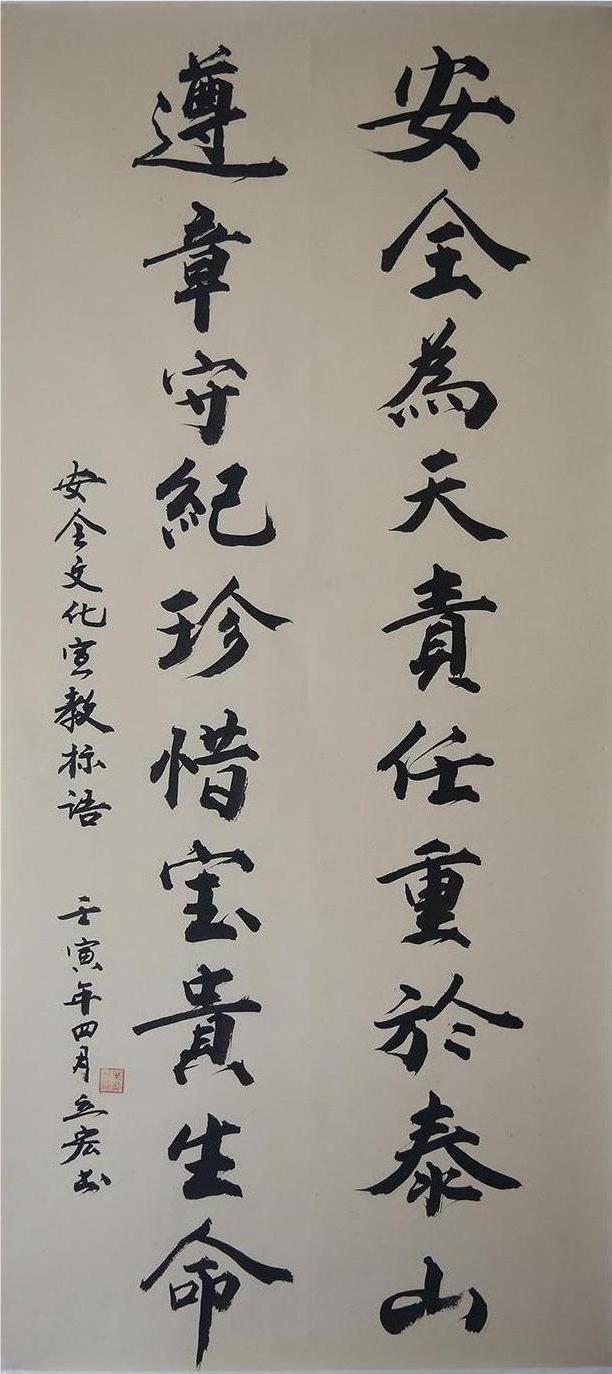 安全為天責任重於泰山
遵章守紀珍惜宝貴生命
安全文化宣教标语 壬寅年四月立宏书